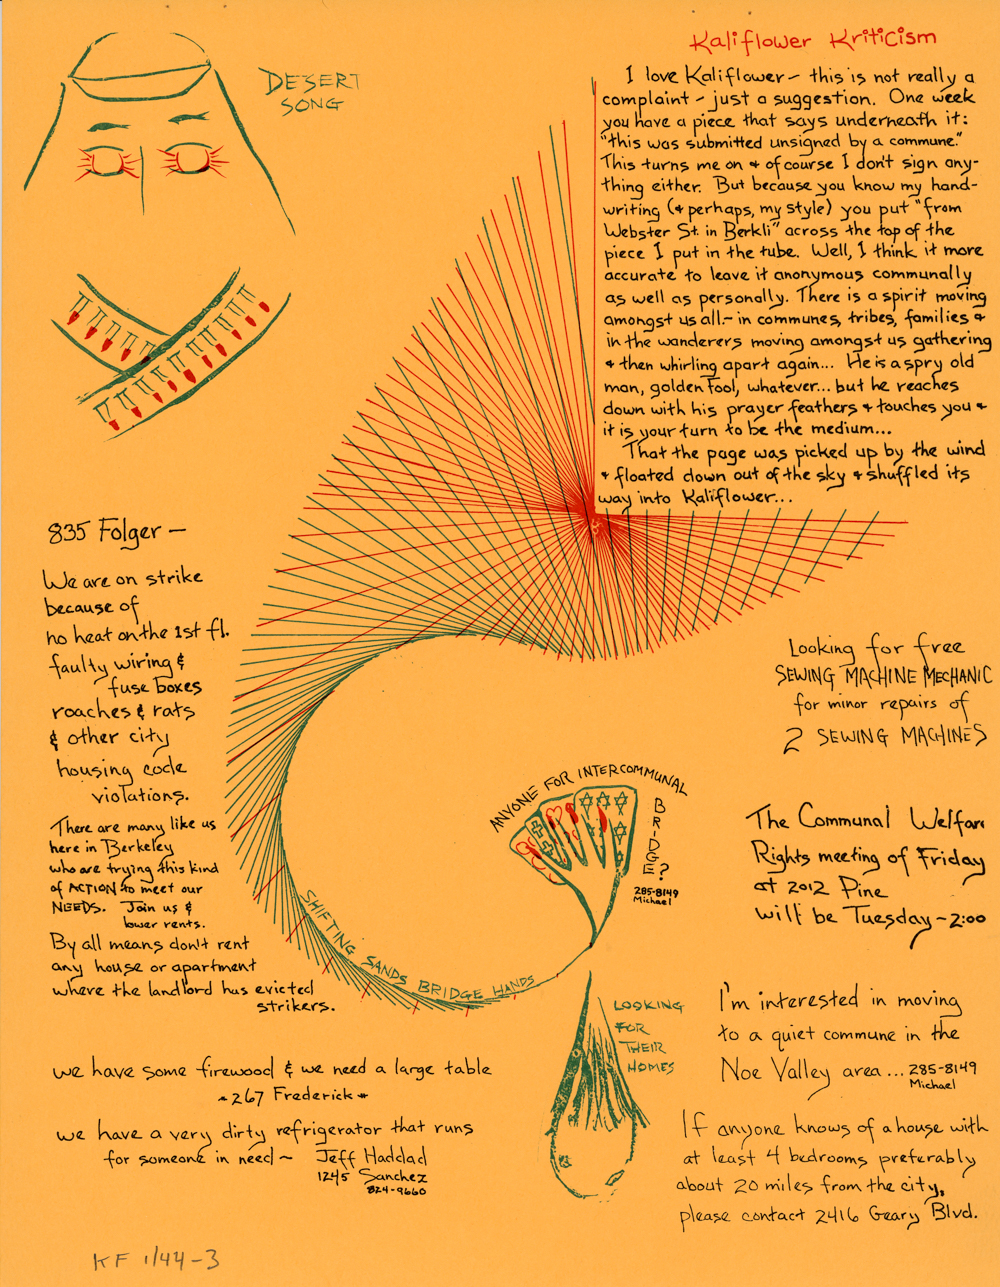 DESERT
SONG
Kaliflower Kriticism
I love Kaliflower - this is not really a
complaint - just a suggestion. One week
you have a piece that says underneath it:
"this was submitted unsigned by a commune."
This turns me on & of course I don't sign any-
thing either. But because you know my hand-
writing (& perhaps, my style) you put "from
Webster St. in Berkli" across the top of the
piece I put in the tube. Well, I think it more
accurate to leave it anonymous communally
as well as personally. There is a spirit moving
amongst us all - in communes, tribes, families &
in the wanderers moving amongst us gathering
& then whirling apart again... He is a spry old
man, golden fool, whatever... but he reaches
down with his prayer feathers & touches you &
it is your turn to be the medium...
That the page was picked up by the wind
& floated down out of the sky & shuffled its
way into Kaliflower...
835 Folger -
We are on strike
because of
no heat on the 1st fl.
faulty wiring &
fuse boxes
roaches & rats
& other city
housing code
violations.
There are many like us
here in Berkeley
who are trying this kind
of ACTION to meet our
NEEDS. Join us &
lower rents.
By all means don't rent
any house or apartment
where the landlord has evicted
strikers.
Looking for free
SEWING MACHINE MECHANIC
for minor repairs of
2 SEWING MACHINES
ANYONE FOR INTERCOMMUNAL
BRIDGE?
285-8149
Michael
The Communal Welfare
Rights meeting of Friday
at 2012 Pine
will be Tuesday - 2:00
SHIFTING SANDS BRIDGE HANDS
LOOKING
FOR
THEIR
HOMES
I'm interested in moving
to a quiet commune in the
Noe Valley area... 285-8149
Michael
we have some firewood & we need a large table
267 Frederick
we have a very dirty refrigerator that runs
for someone in need ~ Jeff Haddad
1245 Sanchez
824-9660
If anyone knows of a house with
at least 4 bedrooms preferably
about 20 miles from the city,
please contact 2416 Geary Blvd.
KF 1/44-3